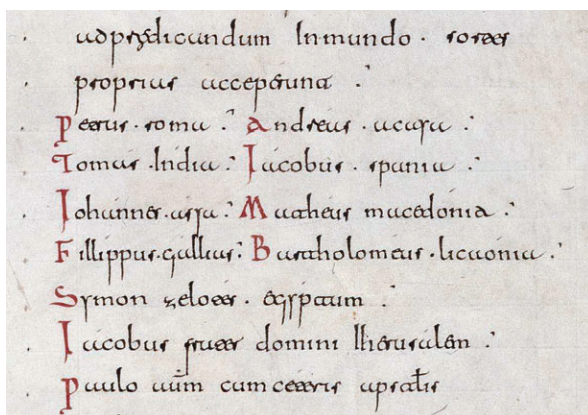 ad predicandum Inmundo · sortes
proprias acceperunt :
Petrus · roma : Andreas · acaya :
Tomas · India : Iacobus · spania :
Iohannes · asia : Matheus macedonia :
Fillippus · gallias : Bartholomeus · licaonia :
Symon zelotes · egyptum :
Iacobus frater domini Iherusalem :
Paulo aūm cum ceteris apstlis